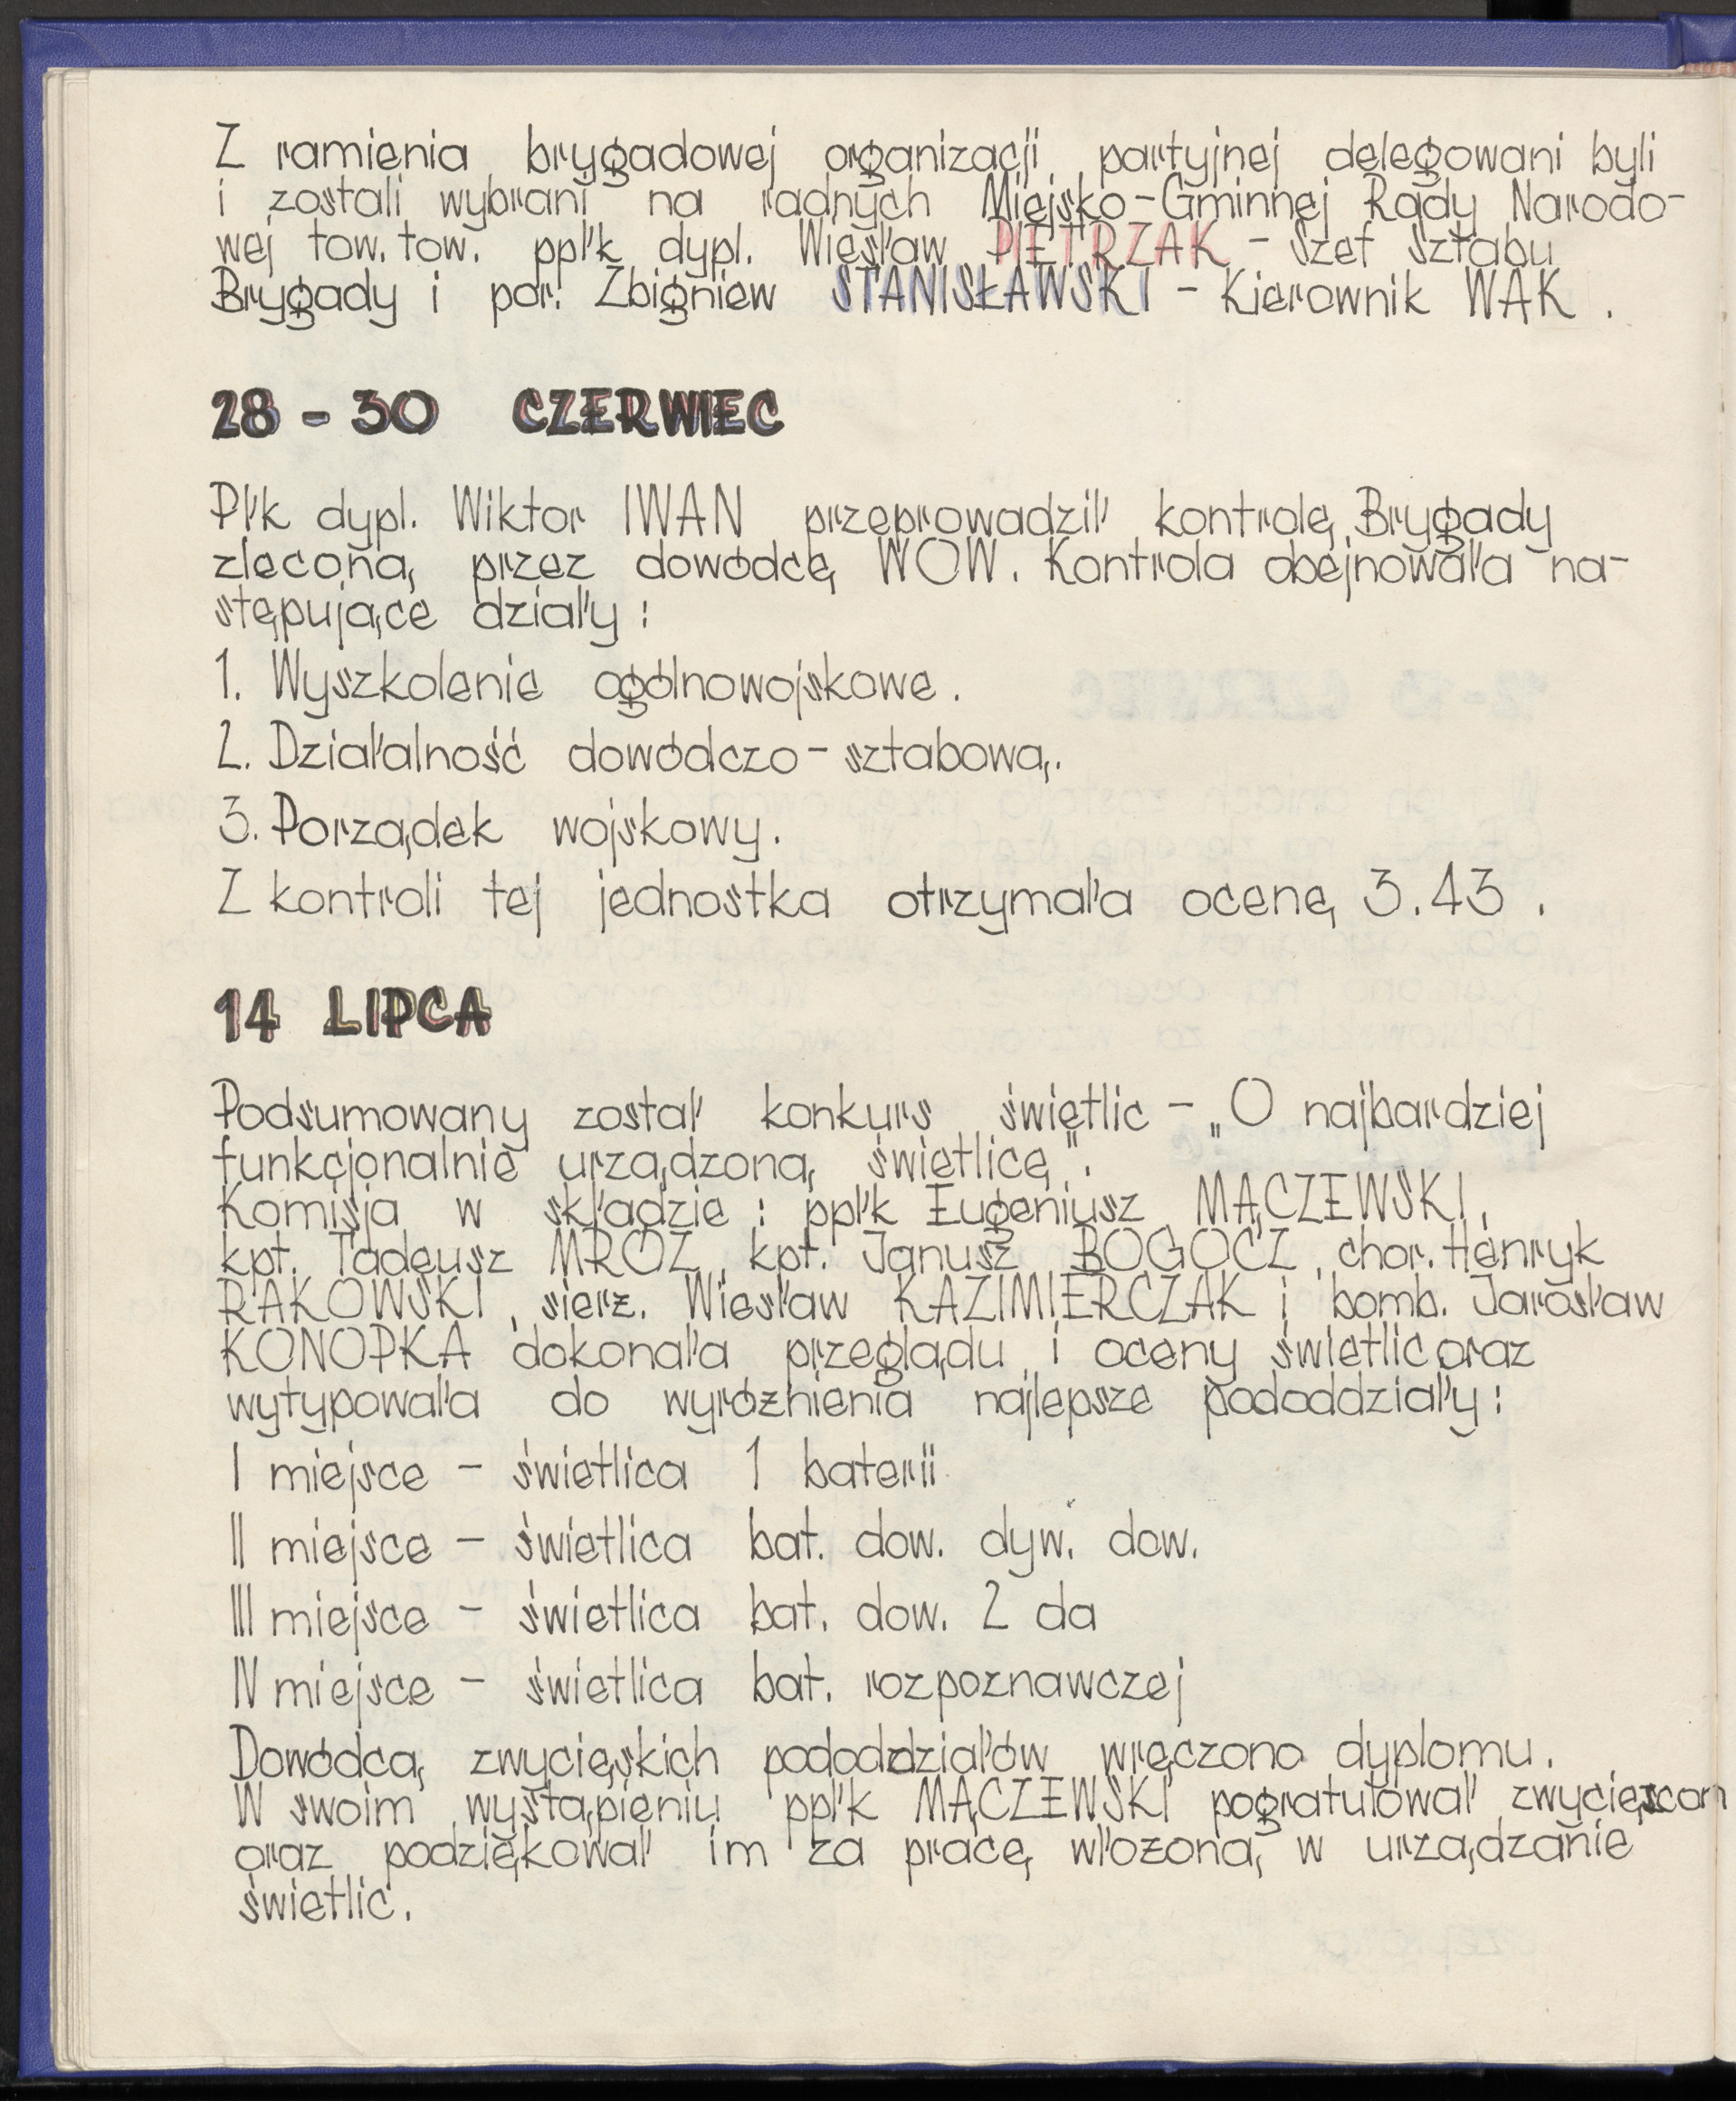 Z ramienia brygadowej organizacji partyjnej delegowani byli
i zostali wybrani na radnych Miejsko-Gminnej Rady Narodo-
wej tow. tow. ppłk dypl. Wiesław PIETRZAK - Szef sztabu
Brygady i por. Zbigniew STANISŁAWSKI - Kierownik WAK.
28 - 30 CZERWIEC
Płk dypl. Wiktor IWAN przeprowadził kontrolę Brygady
zleconą przez dowódcę WOW. Kontrola obejnowała na-
stępujące działy:
1. Wyszkolenie ogólnowojskowe.
2. Działalność dowódczo-sztabową.
3. Porządek wojskowy.
Z kontroli tej jednostka otrzymała ocenę 3.43.
14 LIPCA
Podsumowany został konkurs świetlic - „O najbardziej
funkcjonalnie urządzoną świetlicę".
Komisja w składzie: ppłk Eugeniusz MĄCZEWSKI,
kpt. Tadeusz MRÓZ, kpt. Janusz BOGOCZ, chor. Henryk
RAKOWSKI, sierż. Wiesław KAZIMIERCZAK i bomb. Jarosław
KONOPKA dokonała przeglądu i oceny świetlic oraz
wytypowała do wyróżnienia najlepsze pododdziały:
I miejsce - świetlica 1 baterii
II miejsce - świetlica bat. dow. dyw. dow.
III miejsce - świetlica bat. dow. 2 da
IV miejsce - świetlica bat. rozpoznawczej
Dowódcą zwycięskich pododdziałów wręczono dyplomu.
W swoim wystąpieniu ppłk MĄCZEWSKI pogratulował zwycięzcom
oraz podziękował im za pracę włożoną w urządzanie
świetlic.